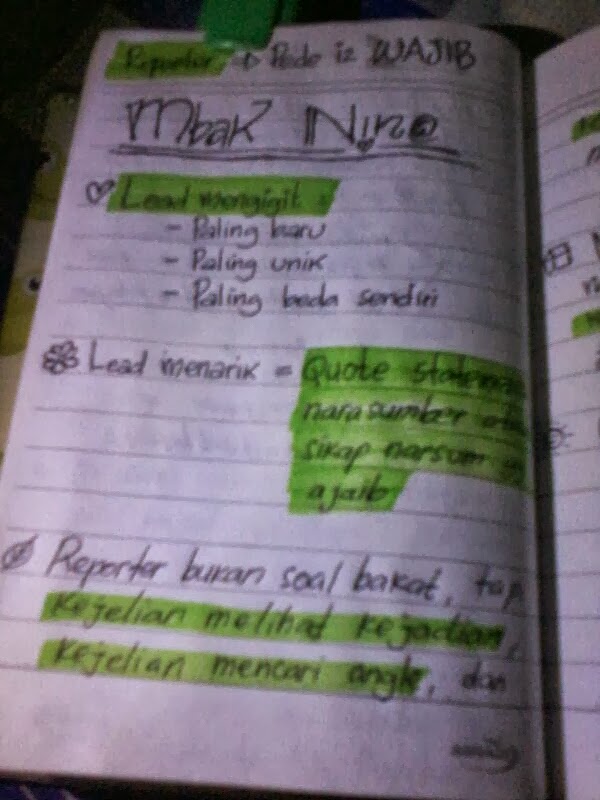 Reporter → Pede is WAJIB
Mbak Nino
Lead mengigit :
- Paling baru
- Paling unik
- Paling beda sendiri
Lead menarik = Quote
narasumber
sikap narsum
ajaib
Reporter bukan soal bakat, tapi
Kejelian melihat kejadian,
Kejelian mencari angle, dan